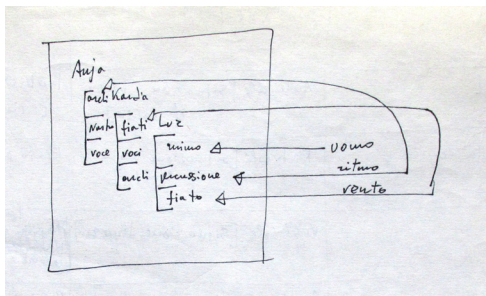 Anja
archi Kanda
Nastro fiati Luz
voce voci mimo uomo
archi percussione ritmo
fiato vento